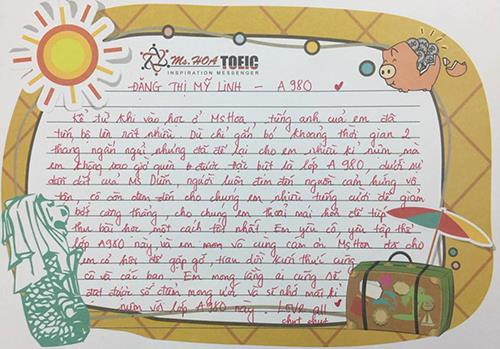 Ms. HOA TOEIC
INSPIRATION MESSENGER
ĐẶNG THỊ MỸ LINH - A980
Kể từ khi vào học ở MsHoa, tiếng anh của em đã
tiến bộ lên rất nhiều. Dù chỉ gắn bó khoảng thời gian 2
tháng ngắn ngủi nhưng đã để lại cho em nhiều kỉ niệm mà
em không bao giờ quên được đặc biệt là lớp A980, dưới sự
dẫn dắt của Ms Dung, người luôn đem đến nguồn cảm hứng vô
tận, cô còn đem đến cho chúng em nhiều tiếng cười để giảm
bớt căng thẳng, cho chúng em thoải mái hơn để tiếp
thu bài học một cách tốt nhất. Em yêu cô, yêu tập thể
lớp A980 này và em cũng cảm ơn MsHoa đã cho
em cơ hội để gặp gỡ, trau dồi kiến thức cùng
cô và các bạn. Em mong rằng ai cũng sẽ
đạt được số điểm mong ước và sẽ nhớ mãi kỉ
niệm với lớp A980 này. Love all
chụt chụt